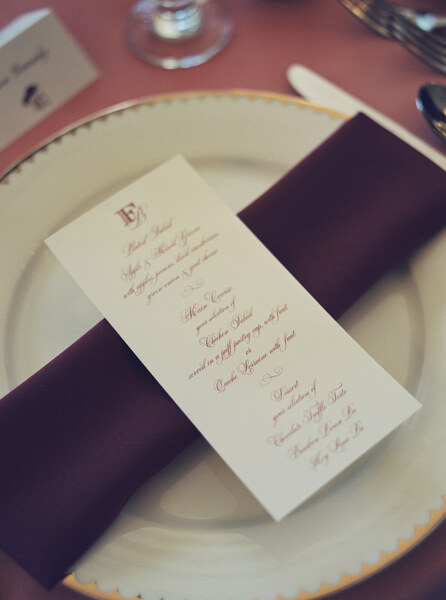 Plated Salad
Apple & Mixed Greens
with apples, pecans, dried cranberries,
green onion & goat cheese
Main Course
your selection of
Chicken Salad
served in a puff pastry cup, with fruit
or
Quiche Lorraine with fruit
Dessert
your selection of
Chocolate Truffle Torte
Bourbon Pecan Pie
Key Lime Pie